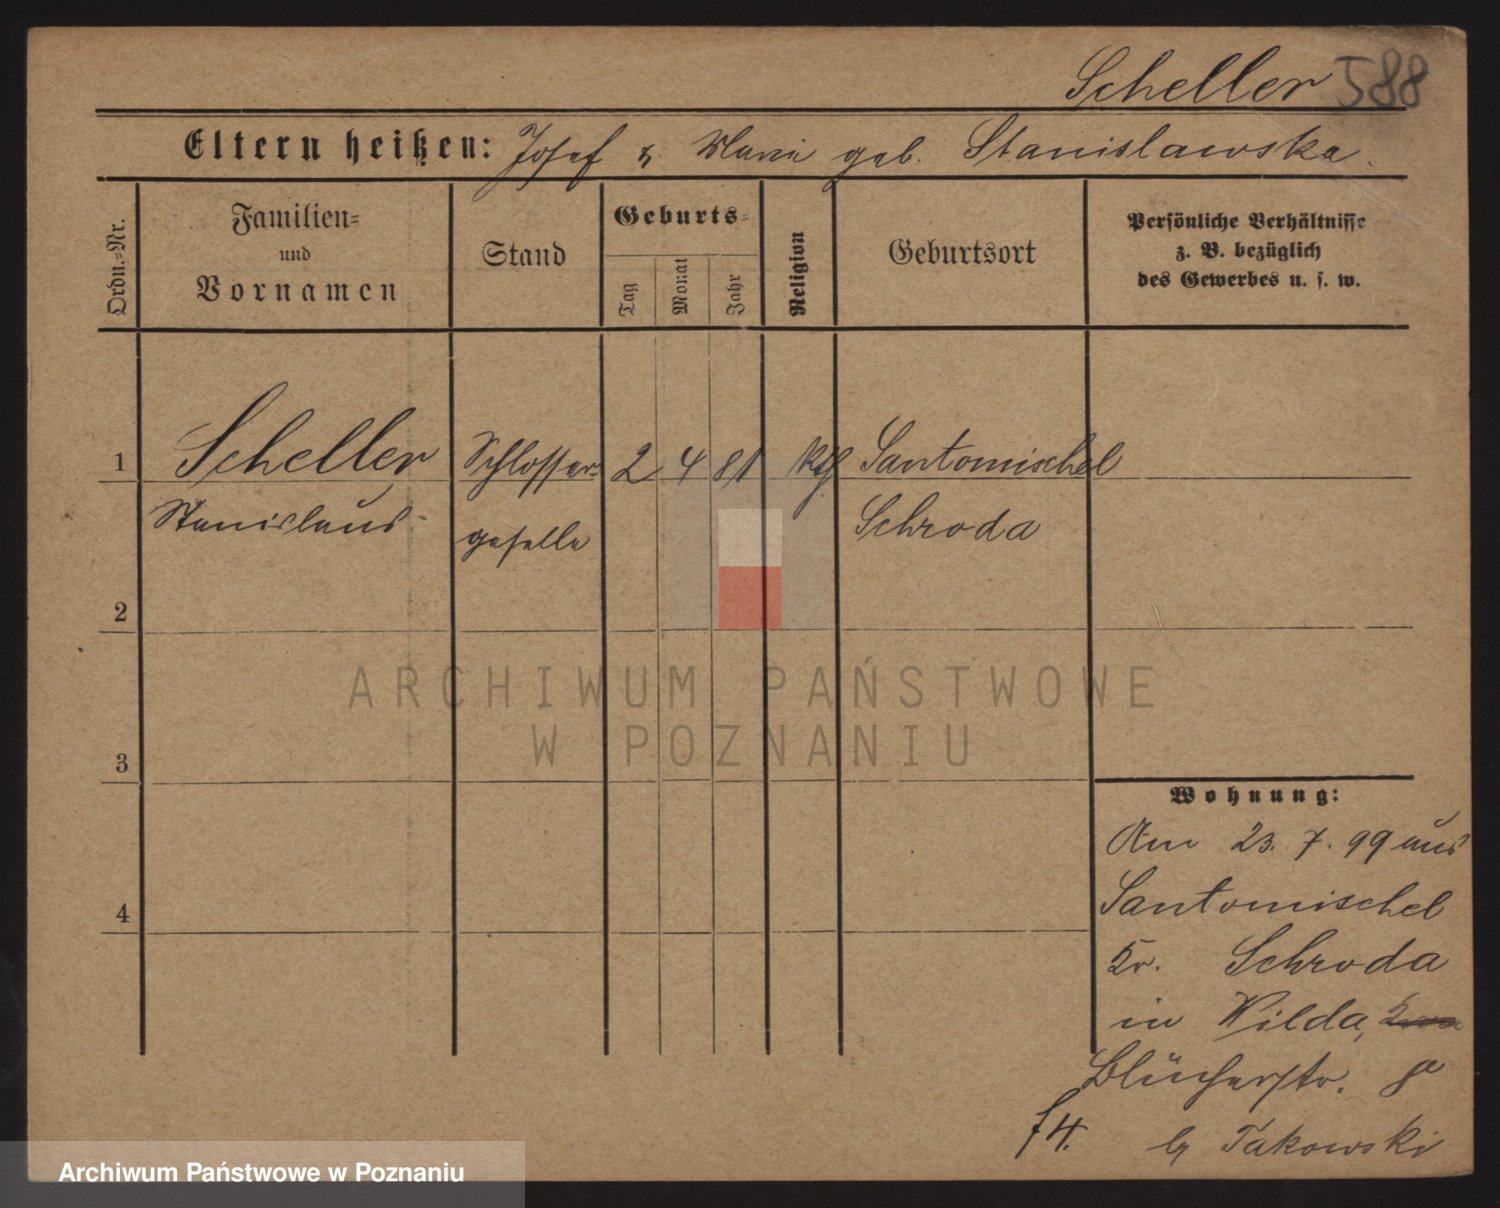 Scheller 588
Eltern heißen: Josef & Marie geb. Stanislawska.
Ordn.-Nr.
Familien-
und
Vornamen
Stand
Geburts-
Tag
Monat
Jahr
Religion
Geburtsort
Persönliche Verhältnisse
z. B. bezüglich
des Gewerbes u. s. w.
1 Scheller Schlosser- 2 4 81 kth Santomischel
Stanislaus geselle Schroda
2
3
4
ARCHIWUM PAŃSTWOWE
W POZNANIU
Wohnung:
Am 23. 7. 99 aus
Santomischel
Kr. Schroda
in Wilda,
Blücherstr. 8a
f4. by Takowski
Archiwum Państwowe w Poznaniu